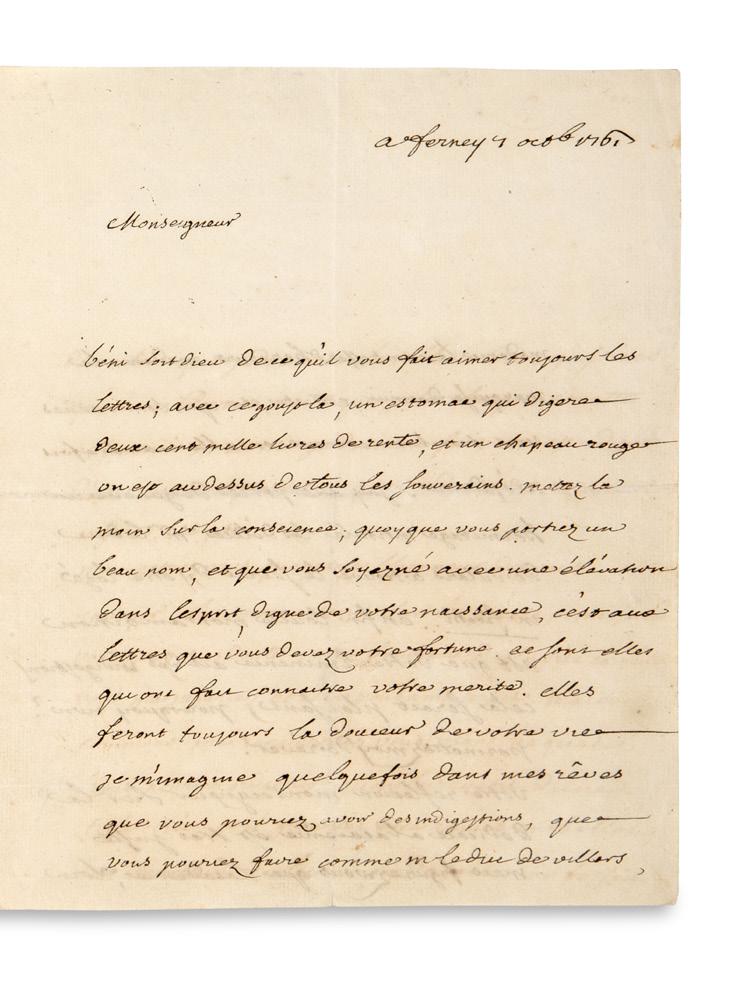 a ferney 7 octb 1761
Monseigneur
béni soit dieu de ce qu'il vous fait aimer toujours les
lettres; avec ce goust la, un estomac qui digere
deux cent mille livres de rente, et un chapeau rouge
on est au dessus de tous les souverains. mettez la
main sur la conscience; quoyque vous portiez un
beau nom, et que vous soyez né avec une élévation
dans l'esprit digne de votre naissance, c'est aux
lettres que vous devez votre fortune. ce sont elles
qui ont fait connaitre votre merite. elles
feront toujours la douceur de votre vie
je m'imagine quelquefois dans mes rêves
que vous pouriez avoir des indigestions, que
vous pouriez faire comme m le duc de villars,